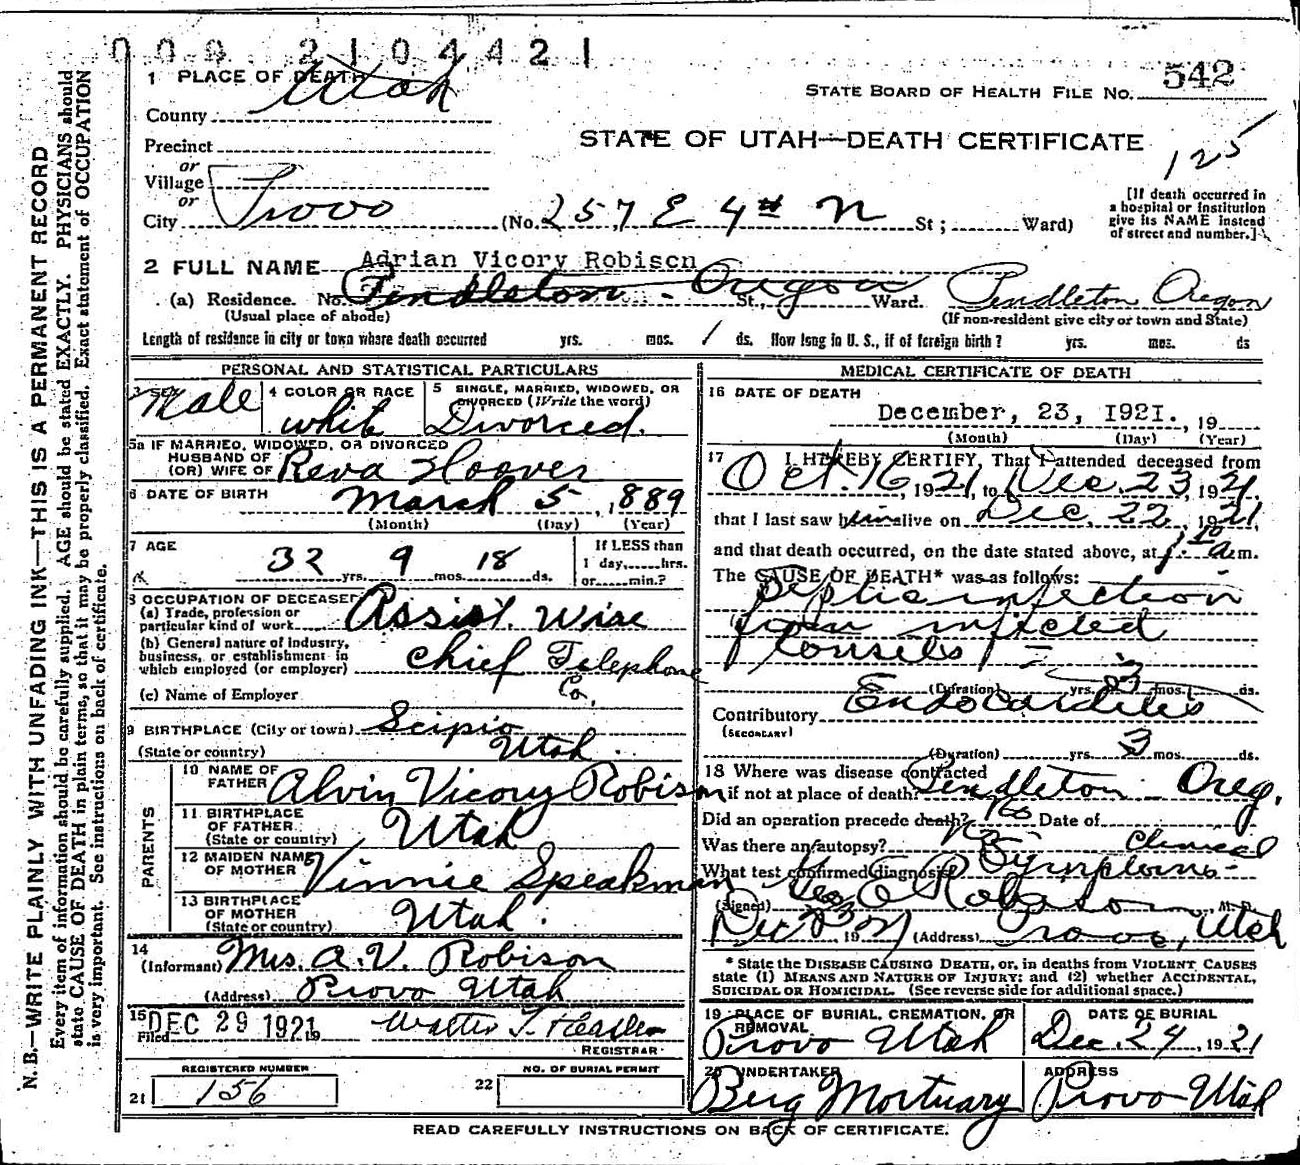 009 2104421
1 PLACE OF DEATH
Utah
County
STATE BOARD OF HEALTH FILE NO. 542
STATE OF UTAH—DEATH CERTIFICATE
125
Precinct
or
Village
or
City Provo (No. 257 E 4th N St; Ward)
[If death occurred in
a hospital or institution
give its NAME instead
of street and number.]
2 FULL NAME Adrian Vicory Robison
(a) Residence. No. Pendleton - Oregon St., Ward. Pendleton Oregon
(Usual place of abode) (If non-resident give city or town and State)
Length of residence in city or town where death occurred yrs. mos. 1 ds. How long in U. S., if of foreign birth? yrs. mos. ds
PERSONAL AND STATISTICAL PARTICULARS
3 SEX Male
4 COLOR OR RACE white
5 SINGLE, MARRIED, WIDOWED, OR
DIVORCED (Write the word)
Divorced.
5a IF MARRIED, WIDOWED, OR DIVORCED
HUSBAND OF
(OR) WIFE OF Reva Hoover
6 DATE OF BIRTH March 5, 1889
(Month) (Day) (Year)
7 AGE 32 yrs. 9 mos. 18 ds.
If LESS than
1 day,......hrs.
or......min.?
8 OCCUPATION OF DECEASED
(a) Trade, profession or
particular kind of work Assist. Wise
(b) General nature of industry,
business, or establishment in
which employed (or employer) Chief Telephone
Co.
(c) Name of Employer
9 BIRTHPLACE (City or town) Scipio
(State or country) Utah.
PARENTS
10 NAME OF
FATHER Alvin Vicory Robison
11 BIRTHPLACE
OF FATHER
(State or country) Utah
12 MAIDEN NAME
OF MOTHER Vinnie Speakman
13 BIRTHPLACE
OF MOTHER
(State or country) Utah.
14
(Informant) Mrs. A. V. Robison
(Address) Provo Utah
15 Filed DEC 29 1921 19 Walter T.
REGISTRAR
REGISTERED NUMBER
21 156
NO. OF BURIAL PERMIT
22
MEDICAL CERTIFICATE OF DEATH
16 DATE OF DEATH
December, 23, 1921. , 19
(Month) (Day) (Year)
17 I HEREBY CERTIFY, That I attended deceased from
Oct. 16, 1921, to Dec. 23, 1921
that I last saw him alive on Dec. 22, 1921,
and that death occurred, on the date stated above, at 1:10 a.m.
The CAUSE OF DEATH* was as follows:
Septic infection
from infected
tonsils
(Duration) yrs. 3 mos. ds.
Contributory Endocarditis
(SECONDARY)
(Duration) yrs. 3 mos. ds.
18 Where was disease contracted
if not at place of death? Pendleton - Oreg.
Did an operation precede death? No Date of
Was there an autopsy? No Clinical
What test confirmed diagnosis Symptoms-
(Signed) Geo E Robison M. D.
Dec 23 1921 (Address) Provo, Utah
* State the DISEASE CAUSING DEATH, or, in deaths from VIOLENT CAUSES
state (1) MEANS AND NATURE OF INJURY; and (2) whether ACCIDENTAL,
SUICIDAL OR HOMICIDAL. (See reverse side for additional space.)
19 PLACE OF BURIAL, CREMATION, OR
REMOVAL
Provo Utah
DATE OF BURIAL
Dec. 24, 1921
20 UNDERTAKER
Berg Mortuary
ADDRESS
Provo Utah
READ CAREFULLY INSTRUCTIONS ON BACK OF CERTIFICATE.
N. B.—WRITE PLAINLY WITH UNFADING INK—THIS IS A PERMANENT RECORD
Every item of information should be carefully supplied. AGE should be stated EXACTLY. PHYSICIANS should
state CAUSE OF DEATH in plain terms, so that it may be properly classified. Exact statement of OCCUPATION
is very important. See instructions on back of certificate.